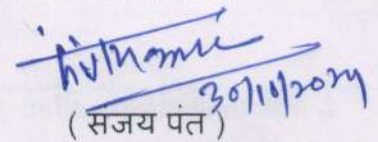 30/10/2024
( संजय पंत )